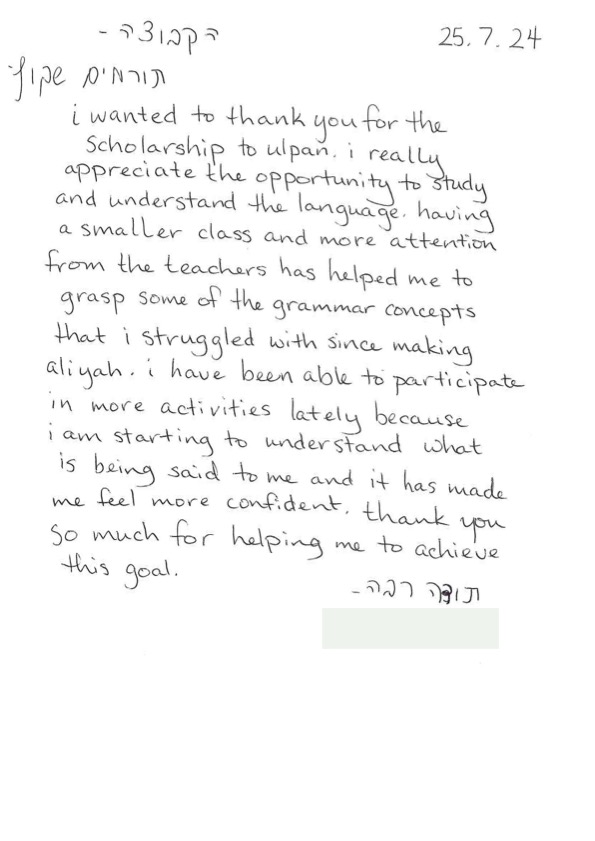 הקבוצה - 25.7.24
תורמים שקוף
i wanted to thank you for the
Scholarship to ulpan. i really
appreciate the opportunity to study
and understand the language. having
a smaller class and more attention
from the teachers has helped me to
grasp some of the grammar concepts
that i struggled with since making
aliyah. i have been able to participate
in more activities lately because
i am starting to understand what
is being said to me and it has made
me feel more confident. thank you
so much for helping me to achieve
this goal.
תודה רבה -